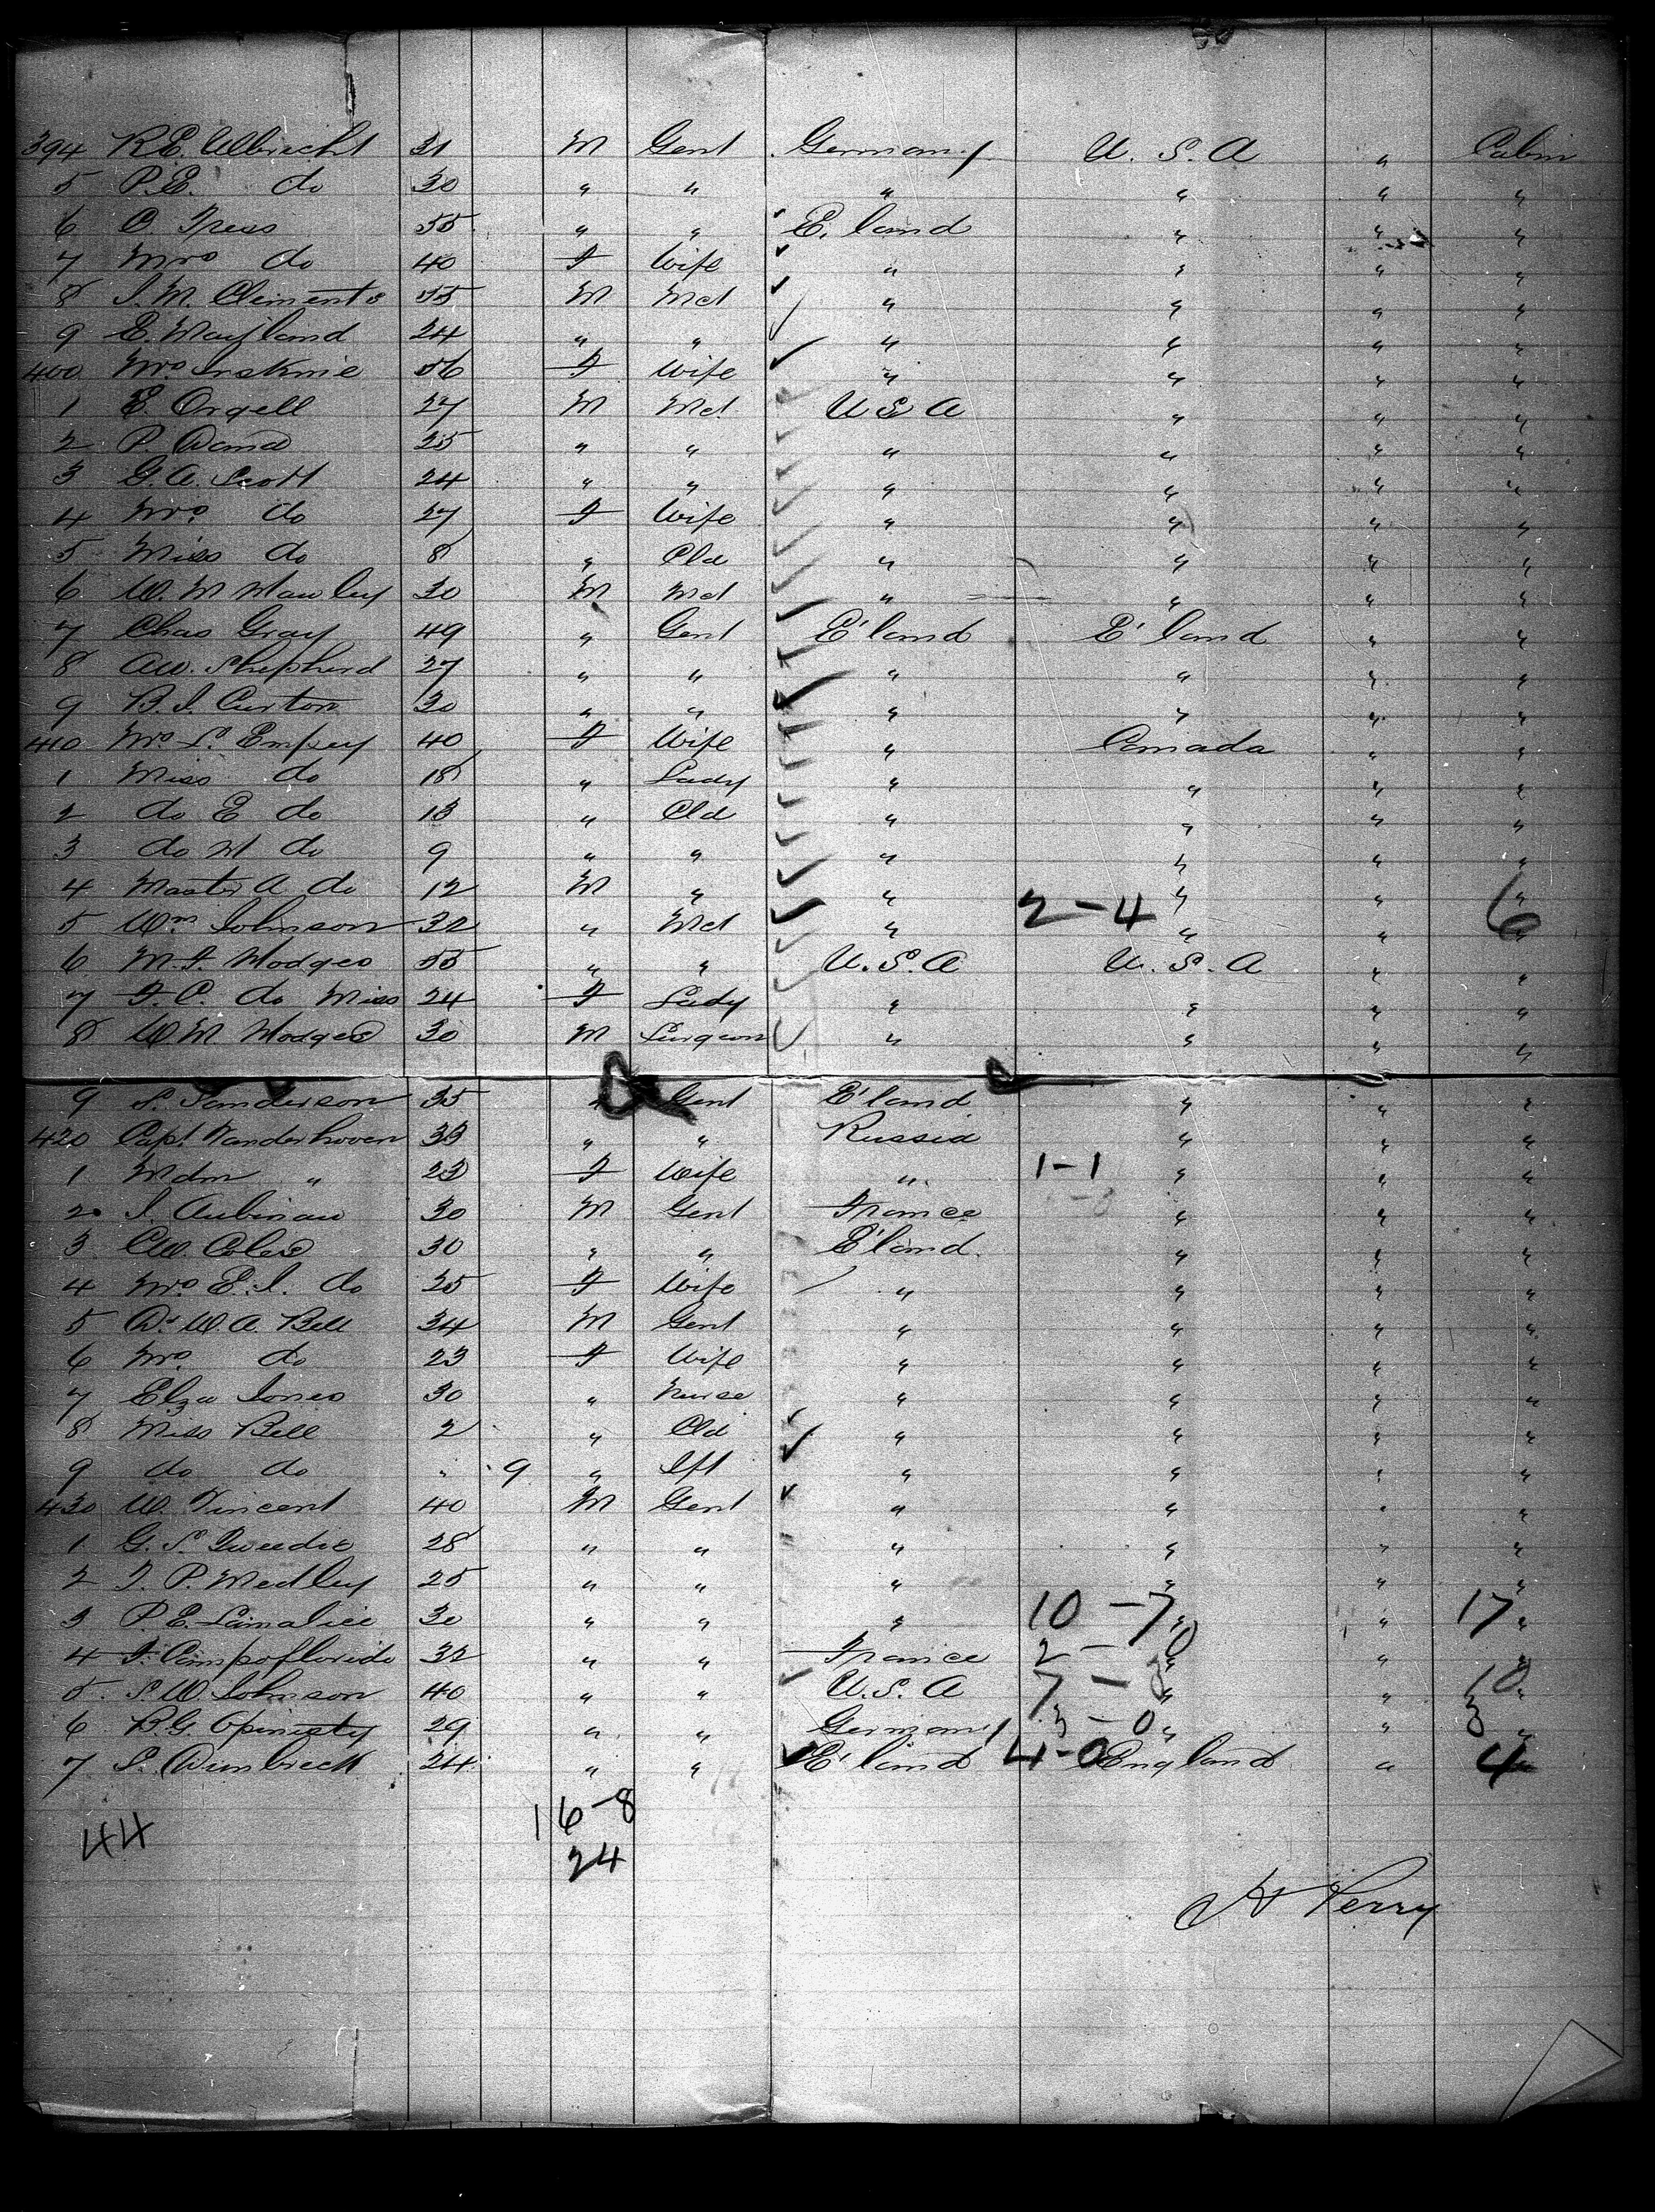 394 R.E. Ulbricht 31 M Gent Germany U. S. A " Cabin
5 P.E. do 30 " " " " " "
6 O. 55 " " E. land " " "
7 Mrs do 40 F Wife " " " "
8 J. M. Clements 55 M Mct " " " "
9 E. Mayland 24 " " " " " "
400 Mrs Irskine 56 F Wife " " " "
1 E. Orgell 27 M Mct U S A " " "
2 P. 25 " " " " " "
3 G. A. Scott 24 " " " " " "
4 Mrs. do 27 F Wife " " " "
5 Miss do 8 " Cld " " " "
6 W. M Hawley 30 M Mct " " " "
7 Chas Gray 49 " Gent E'land E'land " "
8 A W. Shepherd 27 " " " " " "
9 B. J. Curton 30 " " " " " "
410 Mrs S. Empey 40 F Wife " Canada " "
1 Miss do 18 " Lady " " " "
2 do E do 13 " Cld " " " "
3 do M do 9 " " " " " "
4 Master A do 12 M " " " " "
2-4 6
5 Wm Johnson 32 " Mct " " " "
6 M. F. Hodges 55 " " U. S. A U. S. A " "
7 F. C. do Miss 24 F Lady " " " "
8 W M Hodges 30 M Surgeon " " " "
9 S. Sanderson 35 " Gent E'land " " "
420 Capt Vanderhoven 33 " " Russia " " "
1 Mdm " 23 F Wife " 1-1 " " "
2 J. Aubinau 30 M Gent France " " "
3 C W. Coles 30 " " E'land. " " "
4 Mrs E. J. do 25 F Wife " " " "
5 Dr W. A. Bell 34 M Gent " " " "
6 Mrs. do 23 F Wife " " " "
7 Elza Jones 30 " Nurse " " " "
8 Miss Bell 2 " Cld " " " "
9 do do " 9 " Ift " " " "
430 W. Vincent 40 M Gent " " " "
1 G. S. Tweedie 28 " " " " " "
2 J. P. Medley 25 " " " " " "
3 P. E. 30 " " " 10-7 " " 17 "
4 F. Campoflorido 32 " " France 2-0 " " "
5 S. W Johnson 40 " " U. S. A 7-3 " " 10 "
6 B G 29 " " Germany 3-0 " " 3 "
7 S. 24 " " E'land 4-0 England " 4 "
16-8
44
24
H Perry